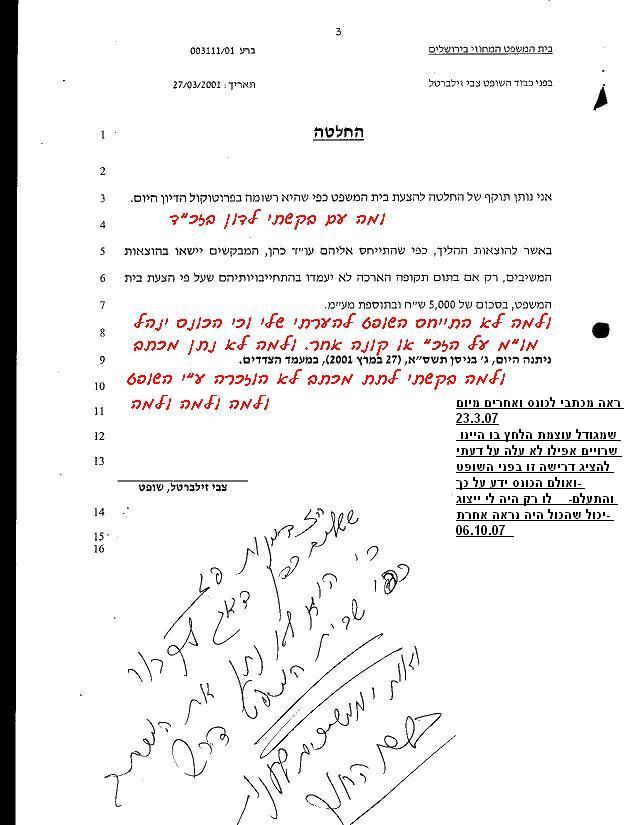 3
בית המשפט המחוזי בירושלים
ברע 003111/01
בפני כבוד השופט צבי זילברטל
תאריך: 27/03/2001
1 החלטה
2
3 אני נותן תוקף של החלטה להצעת בית המשפט כפי שהיא רשומה בפרוטוקול הדיון היום.
4 ומה עם בקשתי לדון בזכ"ד
5 באשר להוצאות ההליך, כפי שהתייחס אליהם עו"ד כהן, המבקשים יישאו בהוצאות
6 המשיבים, רק אם בתום תקופה הארכה לא יעמדו בהתחייבויותיהם שעל פי הצעת בית
7 המשפט, בסכום של 5,000 ש"ח ובתוספת מע"מ.
8 ולמה לא התייחס השופט להערתי שלי וכי הכונס ינהל
מו"מ על הזכ" או קונה אחר. ולמה לא נתן מכתב
9 ניתנה היום, ג' בניסן תשס"א, (27 במרץ 2001), במעמד הצדדים.
10 ולמה בקשתי לתת מכתב לא הוזכרה ע"י השופט
11 ולמה ולמה ולמה
12
13
צבי זילברטל, שופט
14
15
16
ראה מכתבי לכונס ואחרים מיום
23.3.07
שמגודל עוצמת הלחץ בו היינו
שרויים אפילו לא עלה על דעתי
להציג דרישה זו בפני השופט
-ואולם הכונס ידע על כך
והתעלם- לו רק היה לי ייצוג
-יכול שהכול היה נראה אחרת
06.10.07
כי הוא לא נתן את